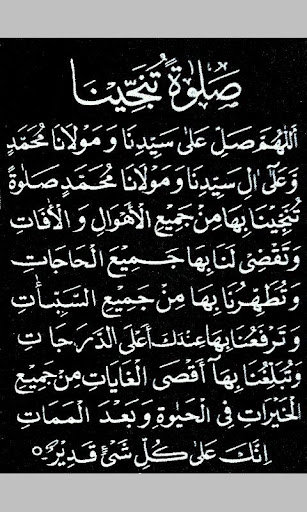 صَلٰوةُ تُنَجِّيْنَا
اَللّٰهُمَّ صَلِّ عَلٰى سَيِّدِنَا وَ مَوْلَانَا مُحَمَّدٍ
وَّعَلٰٓى اٰلِ سَيِّدِنَا وَ مَوْلَانَا مُحَمَّدٍ صَلٰوةً
تُنَجِّيْنَا بِهَا مِنْ جَمِيْعِ الْاَهْوَالِ وَ الْاٰفَاتِ
وَتَقْضِىْ لَنَا بِهَا جَمِيْعَ الْحَاجَاتِ
وَ تُطَهِّرُنَا بِهَا مِنْ جَمِيْعِ السَّيِّـَٔاتِ
وَ تَرْفَعُنَا بِهَا عِنْدَكَ اَعْلَى الدَّرَجَاتِ
وَتُبَلِّغُنَا بِهَآ اَقْصَى الْغَايَاتِ مِنْ جَمِيْعِ
الْخَيْرَاتِ فِى الْحَيٰوةِ وَ بَعْدَ الْمَمَاتِ
اِنَّكَ عَلٰى كُلِّ شَىْءٍ قَدِيْرٌ